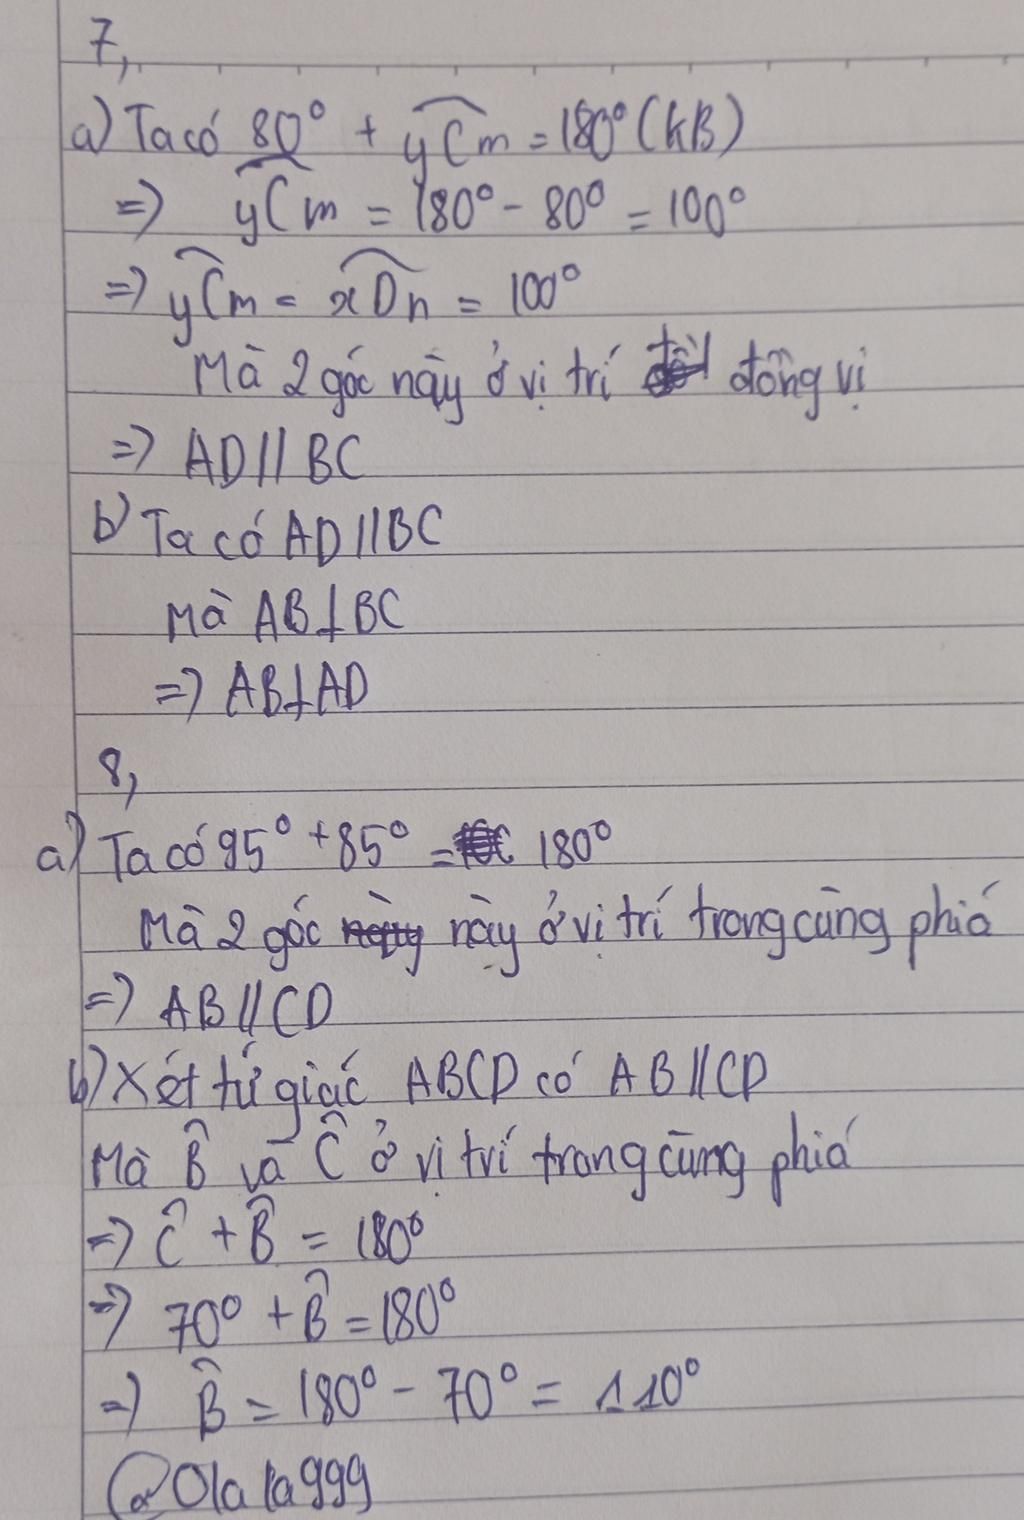 7,
a) Ta có 80° + yCm = 180° (kB)
=> yCm = 180° - 80° = 100°
=> yCm = xDn = 100°
Mà 2 góc này ở vị trí đồng vị
=> AD // BC
b) Ta có AD // BC
Mà AB ⊥ BC
=> AB ⊥ AD
8,
a) Ta có 95° + 85° = 180°
Mà 2 góc này ở vị trí trong cùng phiá
=> AB // CD
b) Xét tứ giác ABCD có AB // CD
Mà B̂ và Ĉ ở vị trí trong cùng phiá
=> Ĉ + B̂ = 180°
=> 70° + B̂ = 180°
=> B̂ = 180° - 70° = 110°
@Olala999